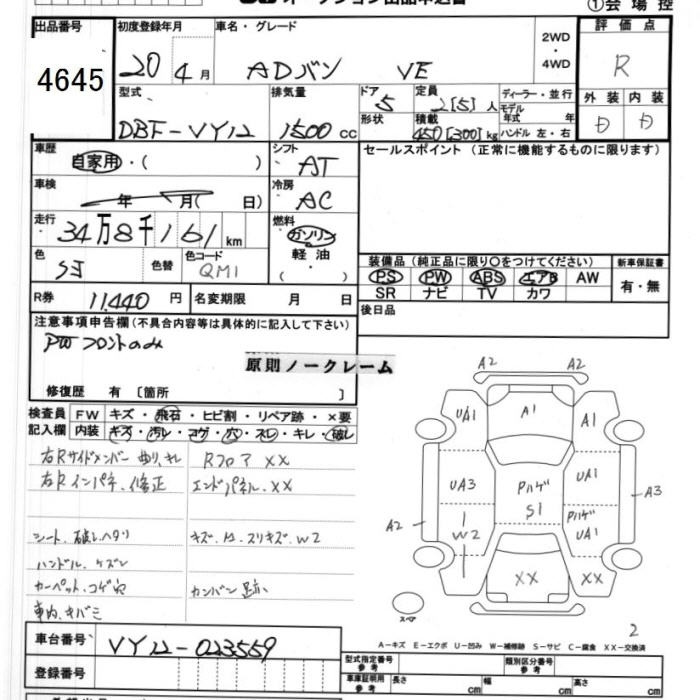 オークション出品申込書
①会場控
出品番号
4645
初度登録年月
20年4月
車名・グレード
ADバン VE
2WD・4WD
評価点
R
型式
DBF-VY12
排気量
1500cc
ドア
5
形状
定員
2[5]人
積載
450[300]kg
ディーラー・並行
モデル年式 年
ハンドル 左・右
外装 内装
D D
車歴
自家用・( )
シフト
AT
セールスポイント(正常に機能するものに限ります)
車検
年 月( 日)
冷房
AC
走行
34万8千161km
燃料
ガソリン
軽油
・( )
色
SI
色替
色コード
QM1
装備品(純正品に限り○をつけてください)
新車保証書
PS PW ABS エアB AW
有・無
SR ナビ TV カワ
R券 11,440円
名変期限 月 日
後日品
注意事項申告欄(不具合内容等は具体的に記入して下さい)
PWフロントのみ
原則ノークレーム
修復歴 有〔箇所 〕
検査員記入欄
FW キズ・飛石・ヒビ割・リペア跡・×要
内装 キズ・汚レ・コゲ・穴・スレ・キレ・破レ
右Rサイドメンバー 曲り、キレ
Rフロア XX
右Rインパネ、修正
エンドパネル、XX
シート、破レ、ヘタリ
ハンドル、ケズレ
カーペット、コゲ穴
カンバン跡
車内、キバミ
A2 A2
UA1 A1 A1
UA3 Pハゲ S1 UA1
A2 A3
W2 Pハゲ UA1
XX XX
スペア
2
A-キズ E-エクボ U-凹み W-補修跡 S-サビ C-腐食 XX-交換済
車台番号
VY12-023559
登録番号
型式指定番号 参考
類別区分番号 参考
車庫証明用 参考
長さ cm
幅 cm
高さ cm